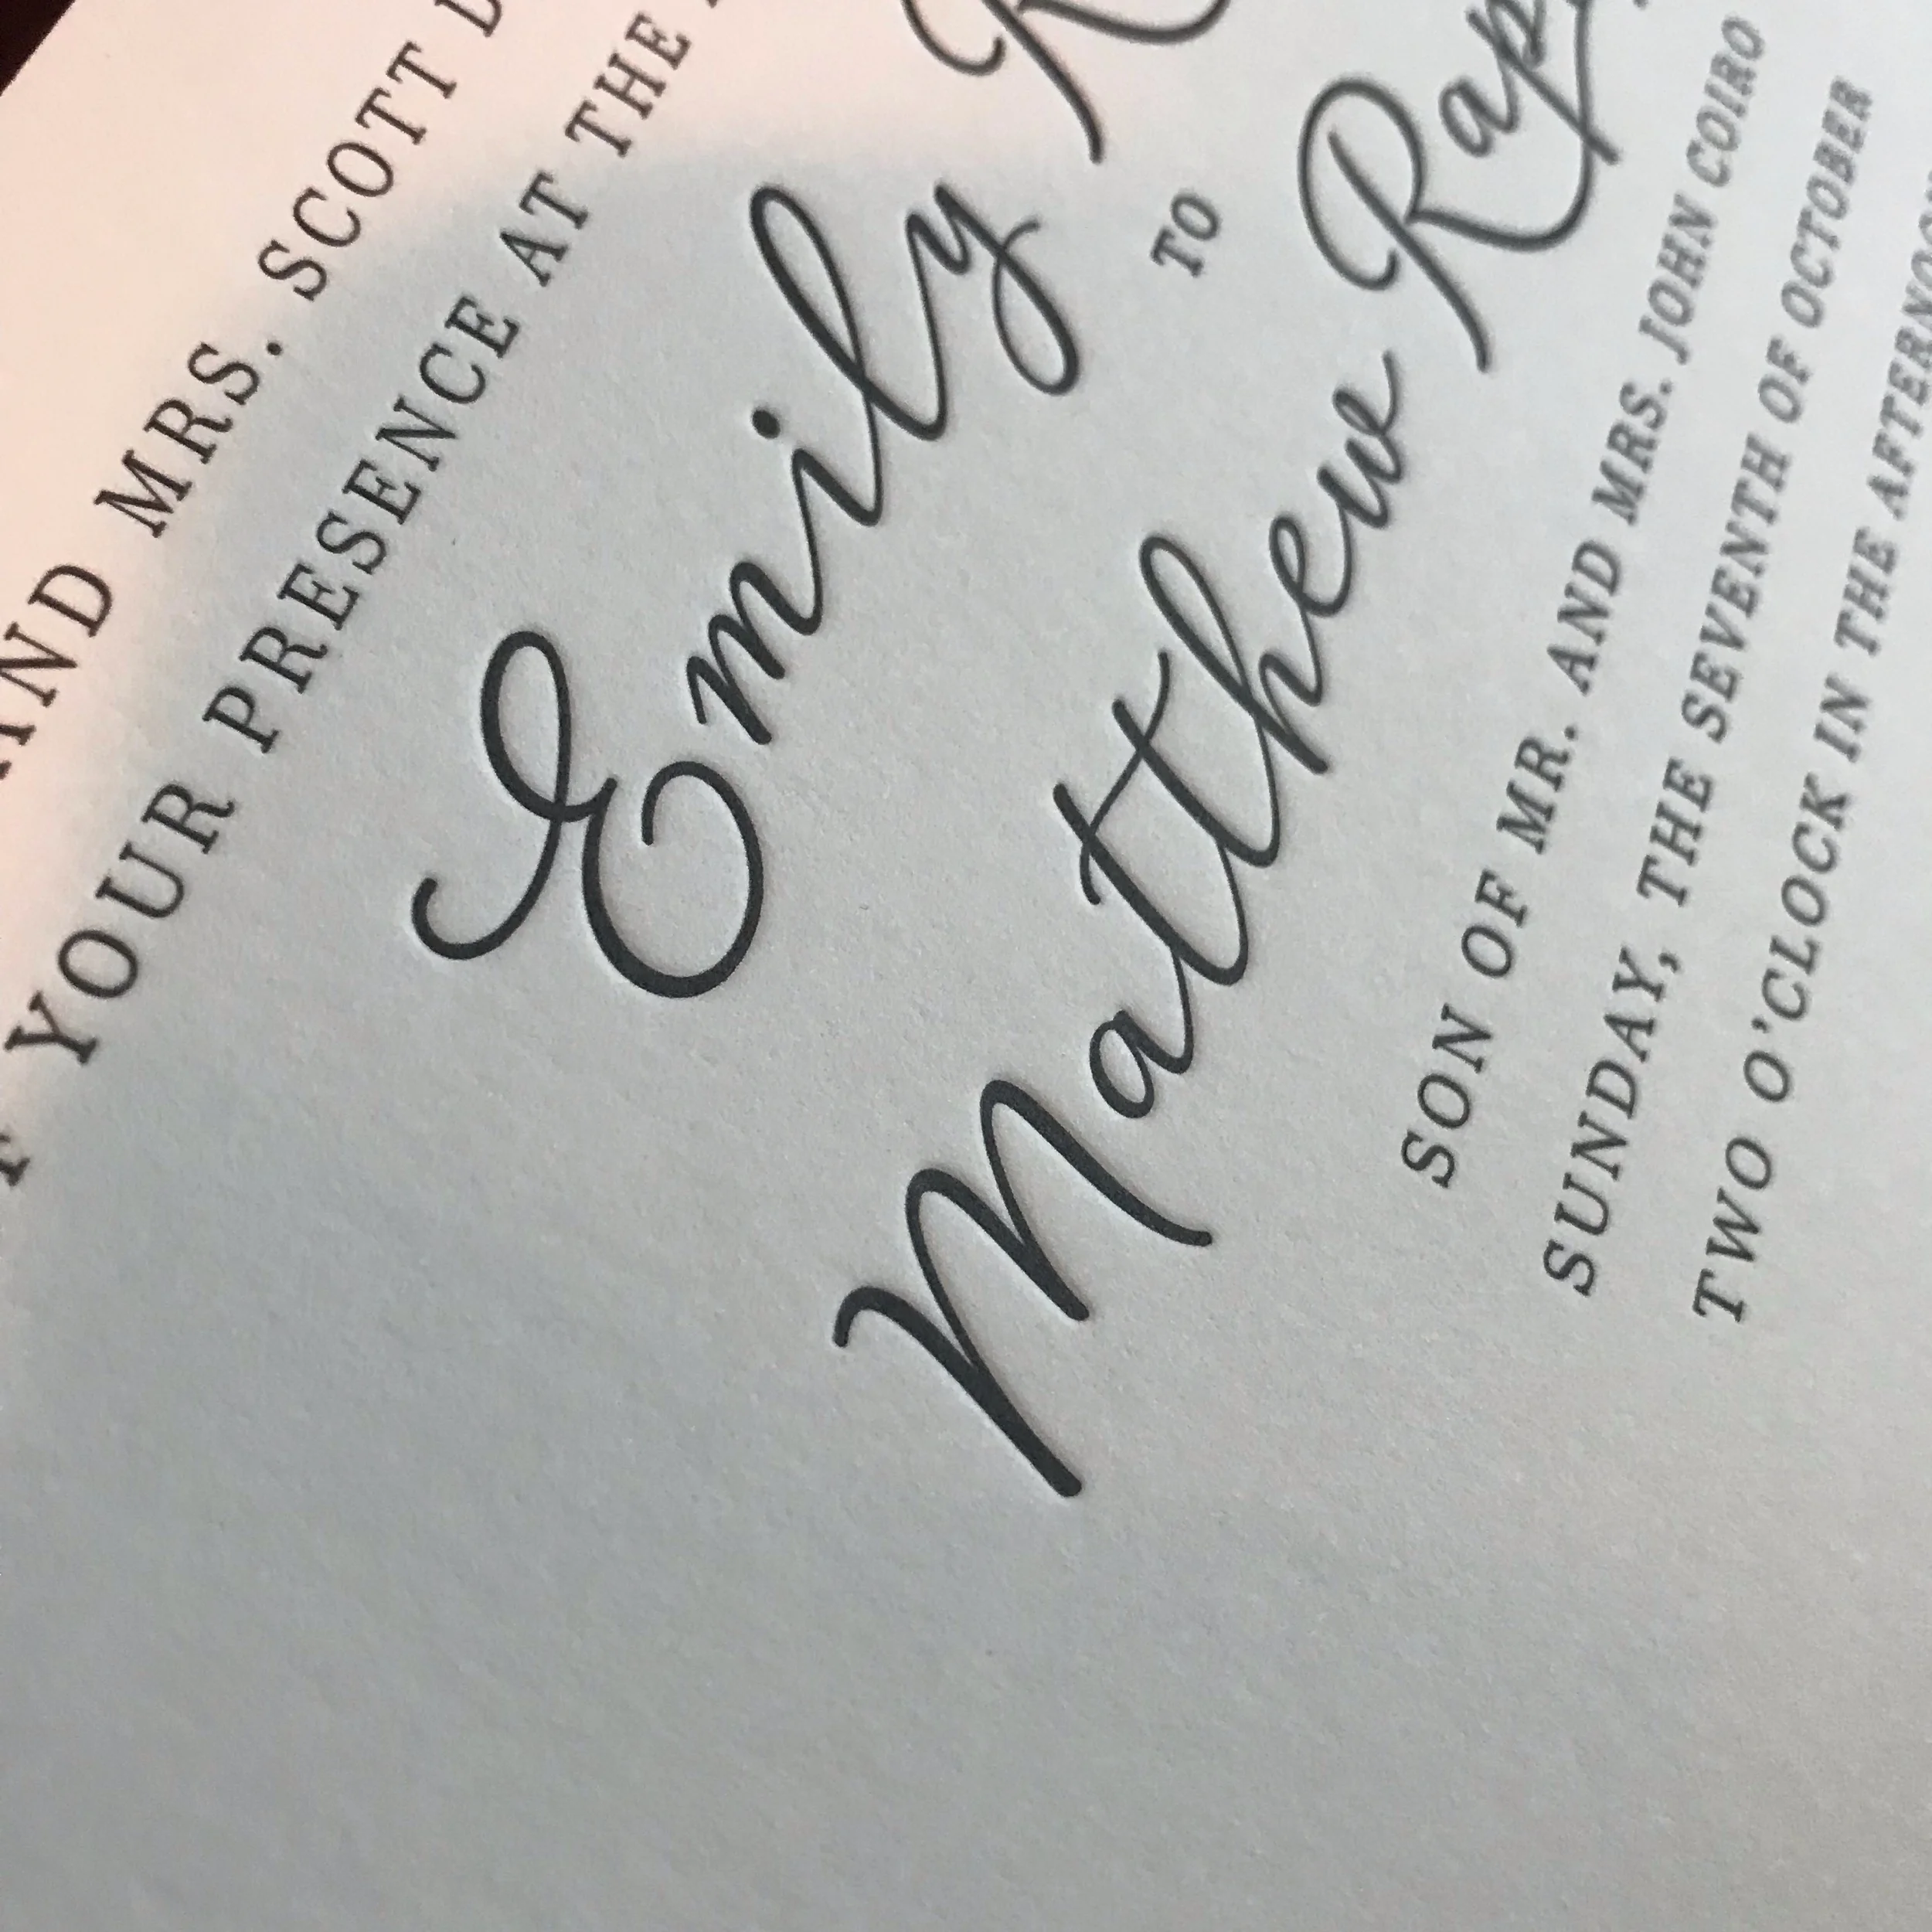 AND MRS. SCOTT
YOUR PRESENCE AT THE
Emily
TO
Matthew
SON OF MR. AND MRS. JOHN COIRO
SUNDAY, THE SEVENTH OF OCTOBER
TWO O'CLOCK IN THE